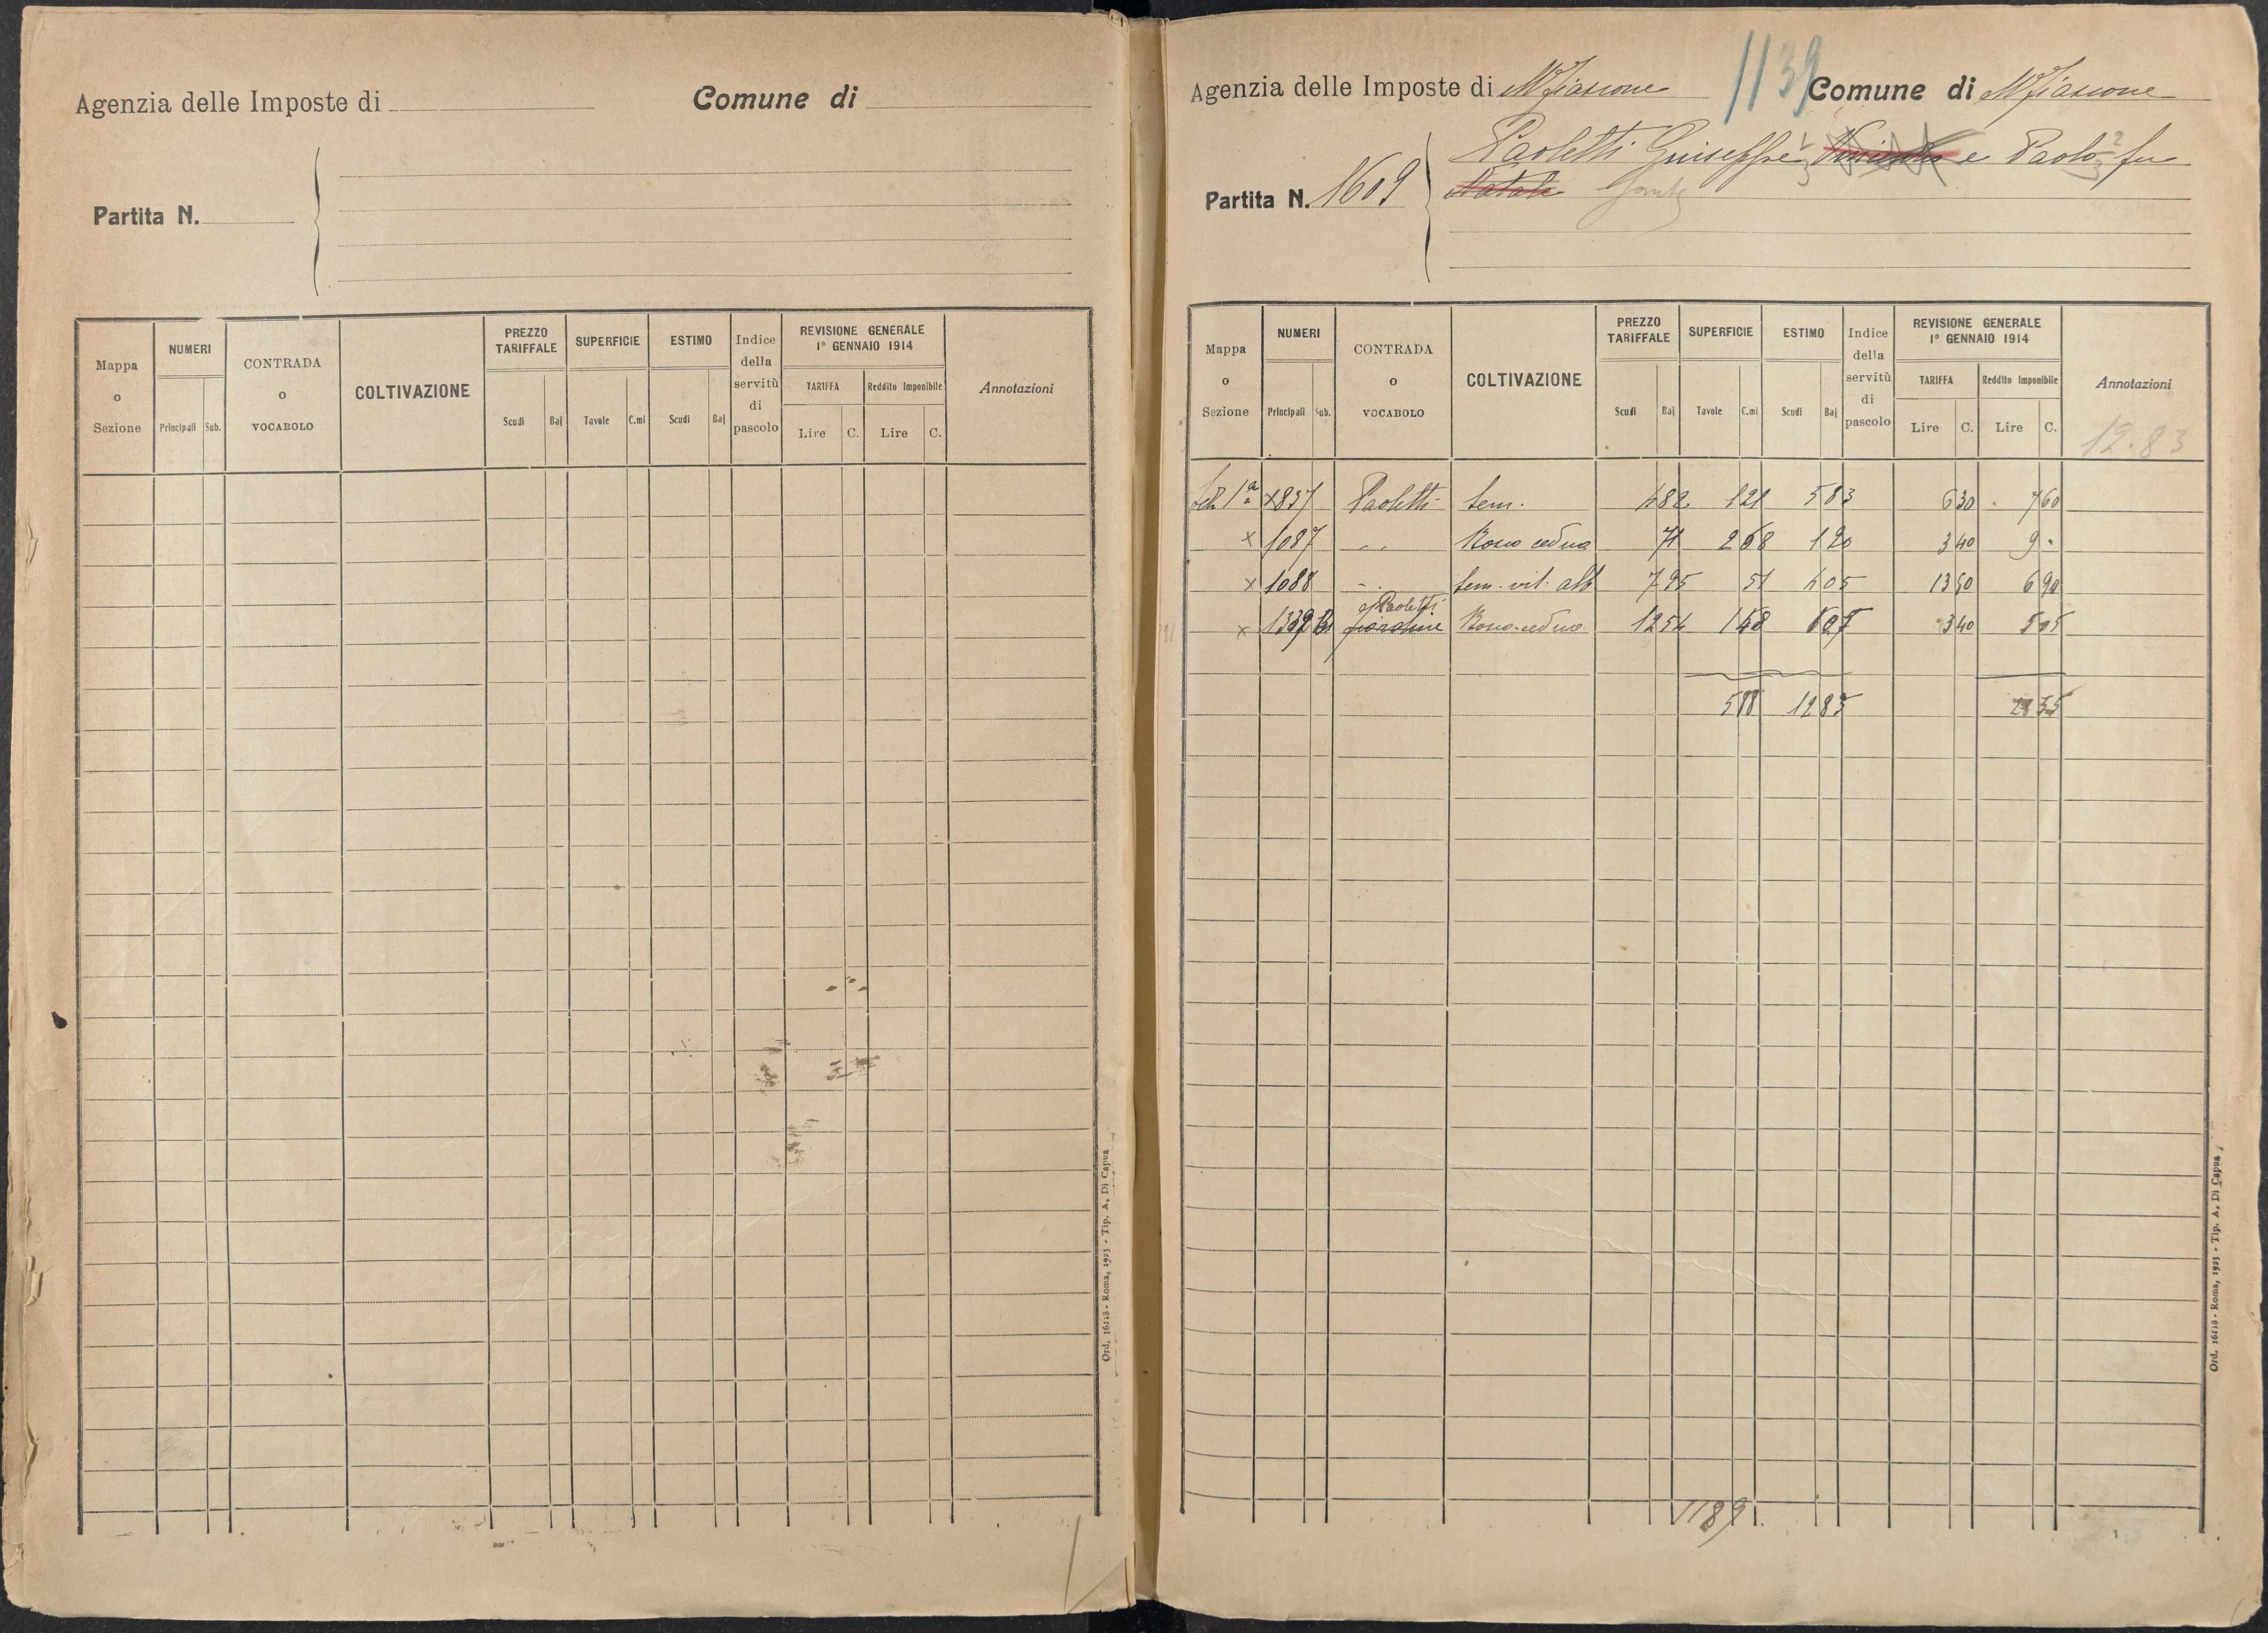 Agenzia delle Imposte di
Comune di
Partita N.
Mappa o Sezione
NUMERI
Principali
Sub.
CONTRADA o VOCABOLO
COLTIVAZIONE
PREZZO TARIFFALE
Scudi
Baj
SUPERFICIE
Tavole
C.mi
ESTIMO
Scudi
Baj
Indice della servitù di pascolo
REVISIONE GENERALE
1° GENNAIO 1914
TARIFFA
Lire
C.
Reddito Imponibile
Lire
C.
Annotazioni
Ord. 16118 - Roma, 1923 - Tip. A. Di Capua
1139
Agenzia delle Imposte di Mfiascone
Comune di Mfiascone
Partita N. 1609
Paoletti Giuseppe 1/3 e Paolo 2/3 fu
Natale
Mappa o Sezione
NUMERI
Principali
Sub.
CONTRADA o VOCABOLO
COLTIVAZIONE
PREZZO TARIFFALE
Scudi
Baj
SUPERFICIE
Tavole
C.mi
ESTIMO
Scudi
Baj
Indice della servitù di pascolo
REVISIONE GENERALE
1° GENNAIO 1914
TARIFFA
Lire
C.
Reddito Imponibile
Lire
C.
Annotazioni
12.83
Sez. 1ª x 837 Paoletti Sem. 4 82 1 21 5 83 6 30 7 60
x 1087 " " Bosco ceduo 71 2 68 1 90 3 40 9 "
x 1088 " Sem. vit. alb 7 95 51 4 05 13 50 6 90
Paoletti
x 1339 Bosco ceduo 1 48 3 40 5 05
5 88 12 85 28 55
1189
Ord. 16118 - Roma, 1923 - Tip. A. Di Capua